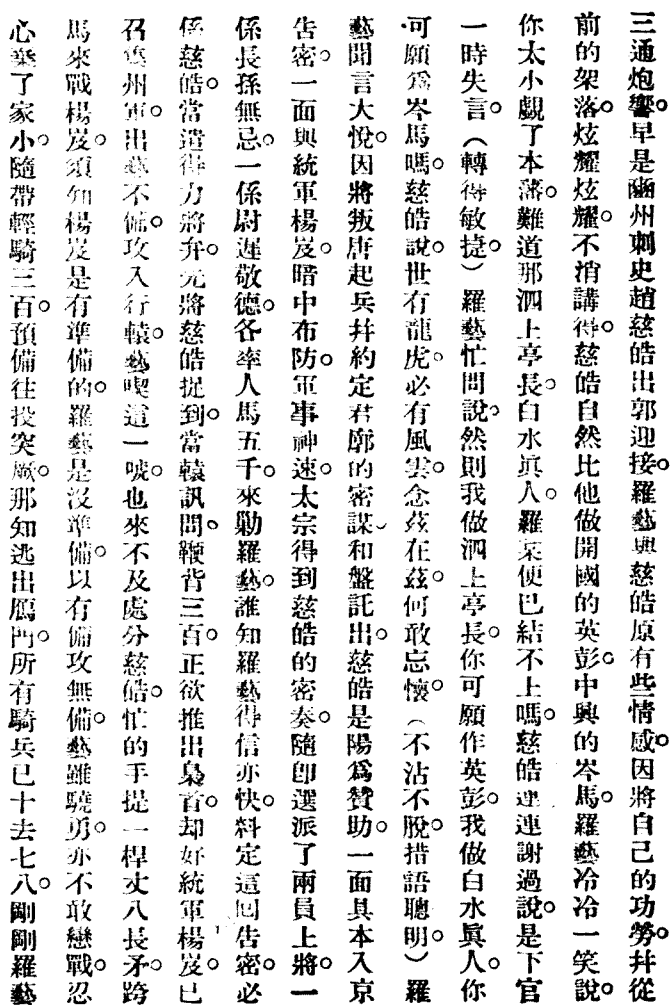 三通炮響。早是豳州刺史趙慈皓出郭迎接。羅藝與慈皓原有些情感。因將自己的功勞幷從
前的架落。炫耀炫耀。不消講得。慈皓自然比他做開國的英彭。中興的岑馬。羅藝冷冷一笑說。
你太小覷了本藩。難道那泗上亭長。白水眞人。羅某便巴結不上嗎。慈皓連連謝過說。是下官
一時失言。（轉得敏捷）羅藝忙問說。然則我做泗上亭長。你可願作英彭。我做白水眞人。你
可願爲岑馬嗎。慈皓說。世有龍虎。必有風雲。念茲在茲。何敢忘懷。（不沾不脫措語聰明）羅
藝聞言大悅。因將叛唐起兵幷約定君廓的密謀。和盤託出。慈皓是陽爲贊助。一面具本入京
告密。一面與統軍楊岌。暗中布防。軍事神速。太宗得到慈皓的密奏。隨卽選派了兩員上將。一
係長孫無忌。一係尉遲敬德。各率人馬五千。來勦羅藝。誰知羅藝得信亦快。料定這回告密。必
係慈皓。當遣得力將弁。先將慈皓捉到。當轅訊問。鞭背三百。正欲推出梟首。却好統軍楊岌。已
召集州軍。出藝不備。攻入行轅。藝喫這一唬。也來不及處分慈皓。忙的手提一桿丈八長矛。跨
馬來戰楊岌。須知楊岌是有準備的。羅藝是沒準備。以有備攻無備。藝雖驍勇。亦不敢戀戰。忍
心棄了家小。隨帶輕騎三百。預備往投突厥。那知逃出鴈門。所有騎兵已十去七八。剛剛羅藝